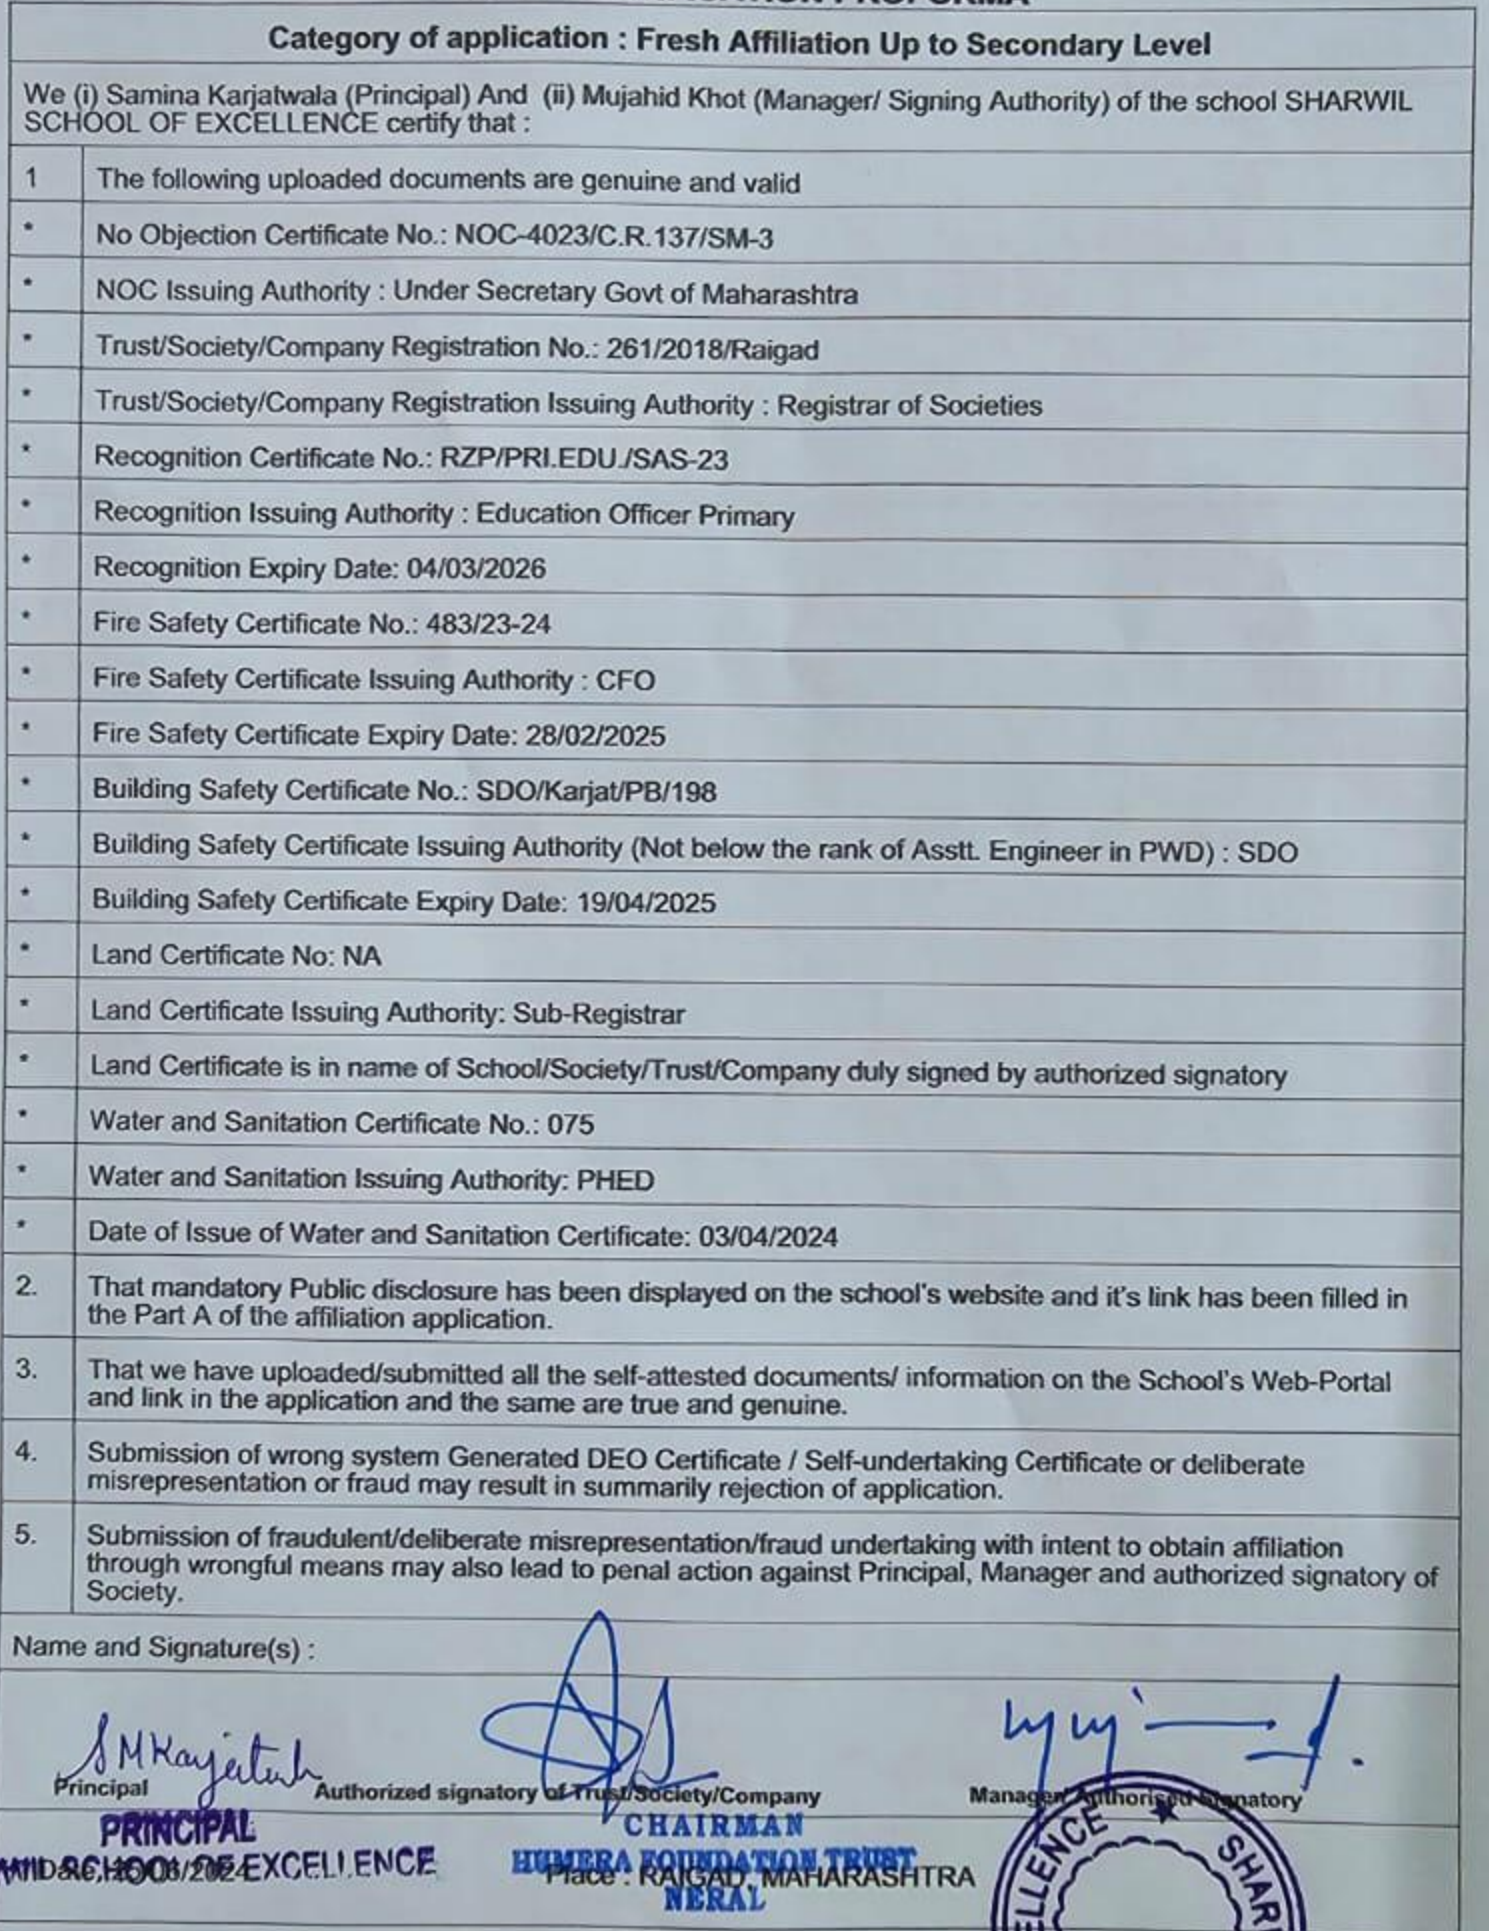 Category of application : Fresh Affiliation Up to Secondary Level
We (i) Samina Karjatwala (Principal) And (ii) Mujahid Khot (Manager/ Signing Authority) of the school SHARWIL
SCHOOL OF EXCELLENCE certify that :
1 The following uploaded documents are genuine and valid
* No Objection Certificate No.: NOC-4023/C.R.137/SM-3
* NOC Issuing Authority : Under Secretary Govt of Maharashtra
* Trust/Society/Company Registration No.: 261/2018/Raigad
* Trust/Society/Company Registration Issuing Authority : Registrar of Societies
* Recognition Certificate No.: RZP/PRI.EDU./SAS-23
* Recognition Issuing Authority : Education Officer Primary
* Recognition Expiry Date: 04/03/2026
* Fire Safety Certificate No.: 483/23-24
* Fire Safety Certificate Issuing Authority : CFO
* Fire Safety Certificate Expiry Date: 28/02/2025
* Building Safety Certificate No.: SDO/Karjat/PB/198
* Building Safety Certificate Issuing Authority (Not below the rank of Asstt. Engineer in PWD) : SDO
* Building Safety Certificate Expiry Date: 19/04/2025
* Land Certificate No: NA
* Land Certificate Issuing Authority: Sub-Registrar
* Land Certificate is in name of School/Society/Trust/Company duly signed by authorized signatory
* Water and Sanitation Certificate No.: 075
* Water and Sanitation Issuing Authority: PHED
* Date of Issue of Water and Sanitation Certificate: 03/04/2024
2. That mandatory Public disclosure has been displayed on the school's website and it's link has been filled in
the Part A of the affiliation application.
3. That we have uploaded/submitted all the self-attested documents/ information on the School's Web-Portal
and link in the application and the same are true and genuine.
4. Submission of wrong system Generated DEO Certificate / Self-undertaking Certificate or deliberate
misrepresentation or fraud may result in summarily rejection of application.
5. Submission of fraudulent/deliberate misrepresentation/fraud undertaking with intent to obtain affiliation
through wrongful means may also lead to penal action against Principal, Manager and authorized signatory of
Society.
Name and Signature(s) :
Principal Authorized signatory of Trust/Society/Company Manager/Authorised Signatory
PRINCIPAL CHAIRMAN
SCHOOL OF EXCELLENCE HUMERA FOUNDATION TRUST
Place : RAIGAD, MAHARASHTRA
NERAL
ELLENCE ★ SHAR